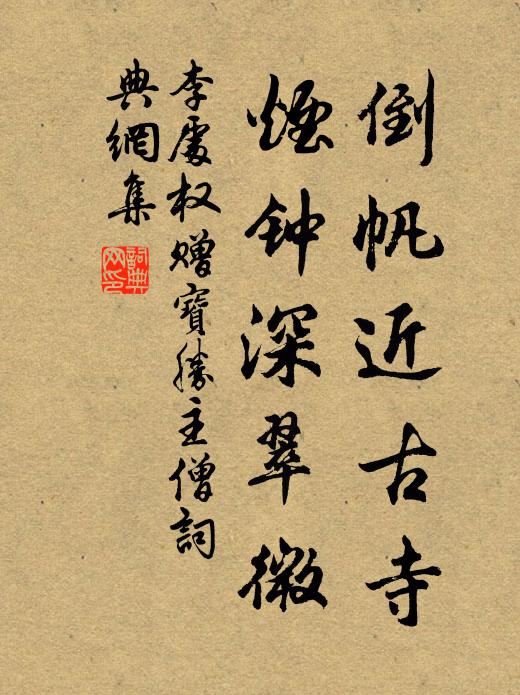 倒帆近古寺
烟钟深翠微
李處权赠寶勝主僧詞
典網集
詞典網印